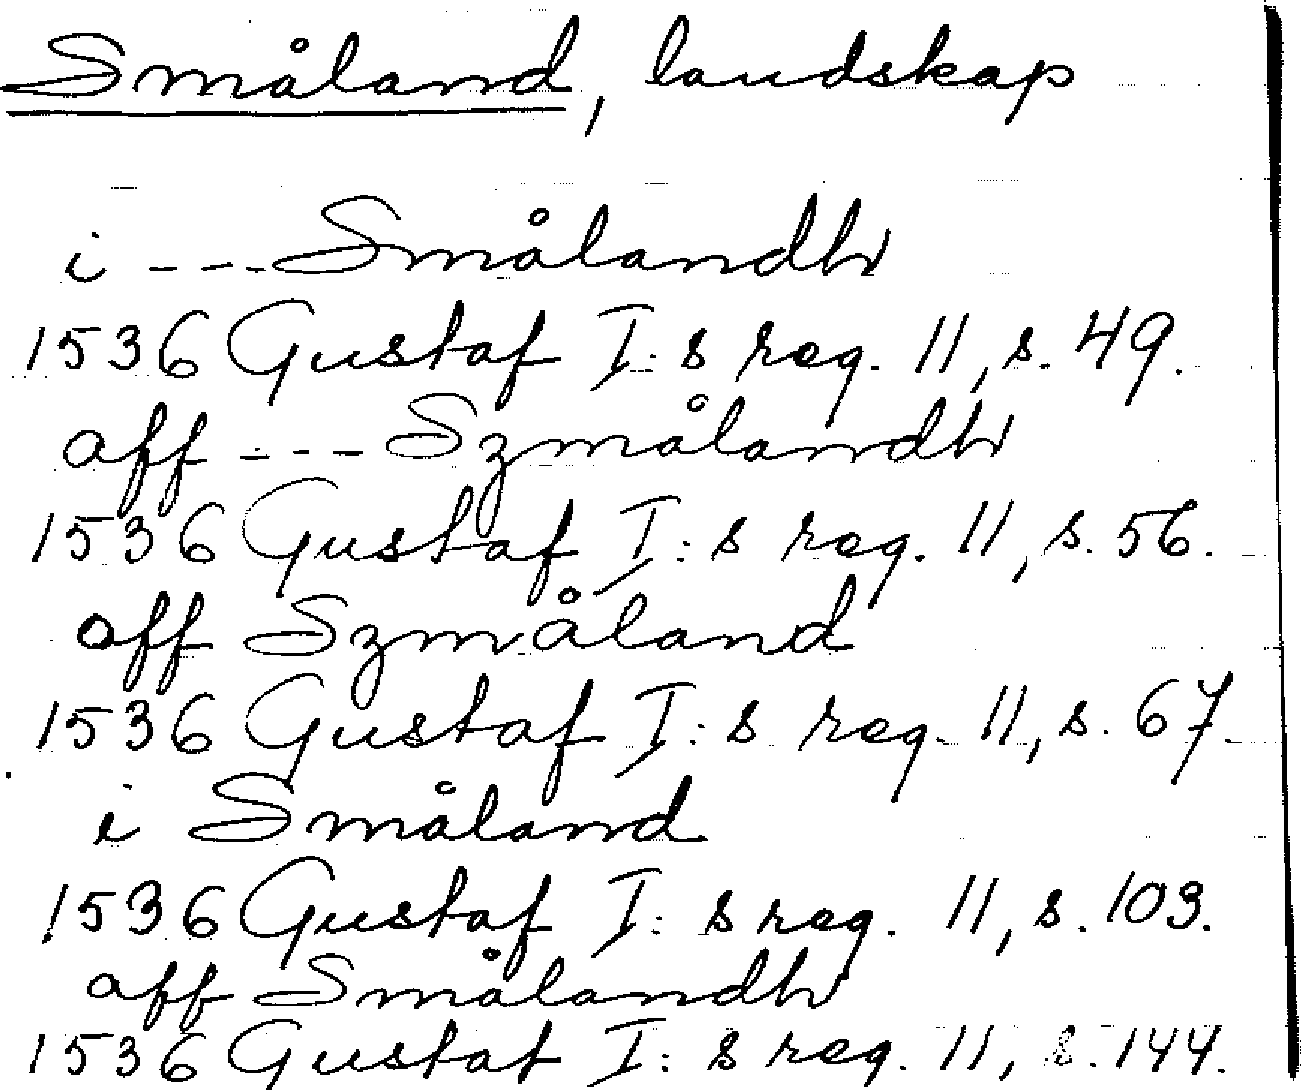 Småland, landskap
i --- Smålandh
1536 Gustaf I:s reg. 11, s. 49.
aff --- Szmålandh
1536 Gustaf I:s reg. 11, s. 56.
aff Szmåland
1536 Gustaf I:s reg. 11, s. 67.
i Småland
1536 Gustaf I:s reg. 11, s. 103.
aff Smålandh
1536 Gustaf I:s reg. 11, s. 144.